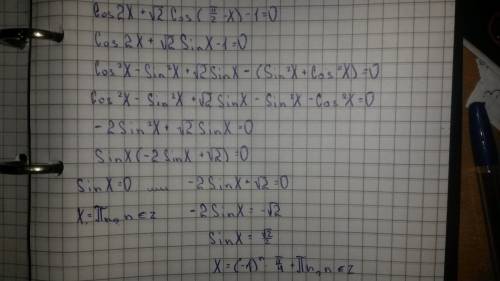 Cos2X + √2 Cos(π/2 - X) - 1 = 0
Cos2X + √2 SinX - 1 = 0
Cos²X - Sin²X + √2 SinX - (Sin²X + Cos²X) = 0
Cos²X - Sin²X + √2 SinX - Sin²X - Cos²X = 0
-2Sin²X + √2 SinX = 0
SinX(-2SinX + √2) = 0
SinX = 0 или -2SinX + √2 = 0
X = πn, n ∈ z -2SinX = -√2
SinX = √2/2
X = (-1)ⁿ π/4 + πn, n ∈ z